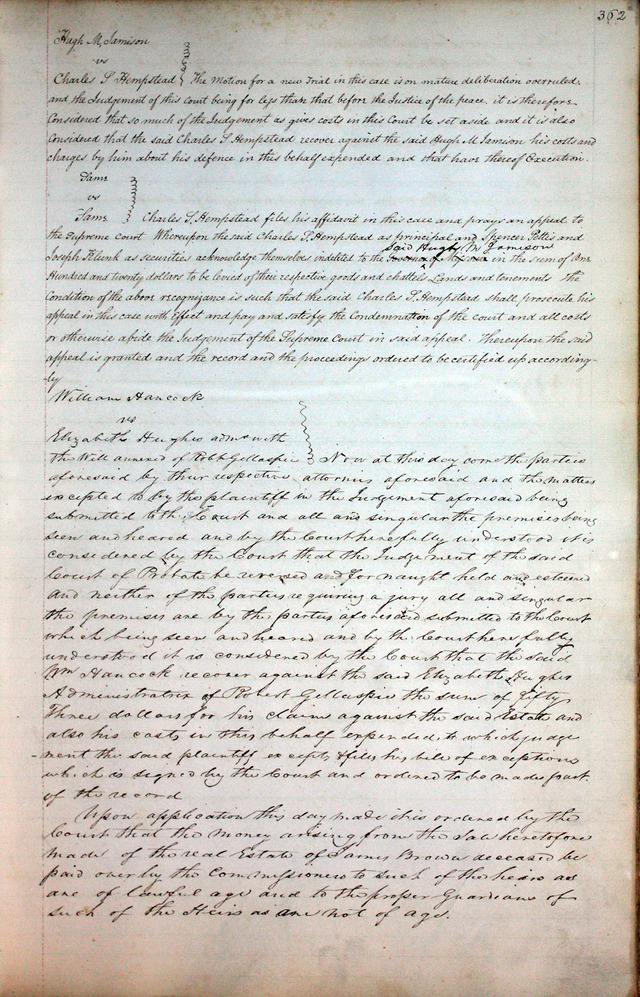 362
Hugh M. Jamison
vs
Charles S. Hempstead The Motion for a new trial in this case is on mature deliberation overruled.
and the Judgement of this court being for less than that before the Justice of the peace. it is therefore
Considered that so much of the Judgement as gives costs in this Court be set aside and it is also
Considered that the said Charles S. Hempstead recover against the said Hugh M. Jamison his costs and
charges by him about his defence in this behalf expended and that have thereof Execution.
Same
vs
Same Charles S. Hempstead files his affidavit in this case and prays an appeal to
the Supreme Court Whereupon the said Charles S. Hempstead as principal and Spencer Pettis and
said Hugh M Jamison
Joseph as securities acknowledge themselves indebted to the Governor of Missouri in the sum of One
Hundred and Twenty dollars to be levied of their respective goods and chattels Lands and tenements the
Condition of the above recognizance is such that the said Charles S. Hempstead shall prosecute his
appeal in this case with Effect and pay and satisfy the Condemnation of the court and all costs
or otherwise abide the Judgement of the Supreme Court in said appeal. Thereupon the said
appeal is granted and the record and the proceedings ordered to be certified up according-
ly
William Hancock
vs
Elizabeth Hughes admx with
the Will annexed of Robt Gillaspie Now at this day come the parties
aforesaid by their respective attornies aforesaid and the matters
excepted to by the plaintiff in the Judgement aforesaid being
submitted to the Court and all and singular the premises being
seen and heared and by the Court here fully understood it is
considered by the Court that the Judgement of the said
Court of Probate be reversed and for naught held and esteemed
and neither of the parties requiring a jury all and singular
the premises are by the parties aforesaid submitted to the Court
which being seen and heared and by the Court here fully
understood it is considered by the Court that the said
Wm Hancock recover against the said Elizabeth Hughes
Administratrix of Robert Gillaspie the sum of fifty
Three dollars for his claim against the said Estate and
also his costs in this behalf expended, to which judge
ment the said plaintiff excepts & files his bile of exceptions
which is signed by the Court and ordered to be made part
of the record
Upon application this day made it is ordered by the
Court that the money arising from the Sale heretofore
made of the real Estate of James Brown deceased be
paid over by the Commissioners to such of the heirs as
are of lawful age and to the proper Guardians of
such of the Heirs as are not of age.